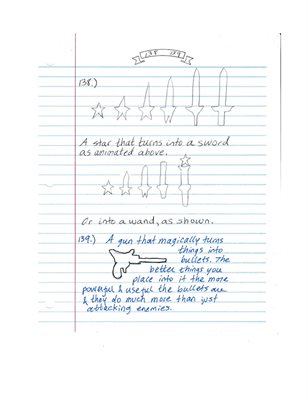 138 139
138.)
A star that turns into a sword
as animated above.
Or into a wand, as shown.
139.) A gun that magically turns
things into
bullets. The
better things you
place into it the more
powerful & useful the bullets are
& they do much more than just
attacking enemies.